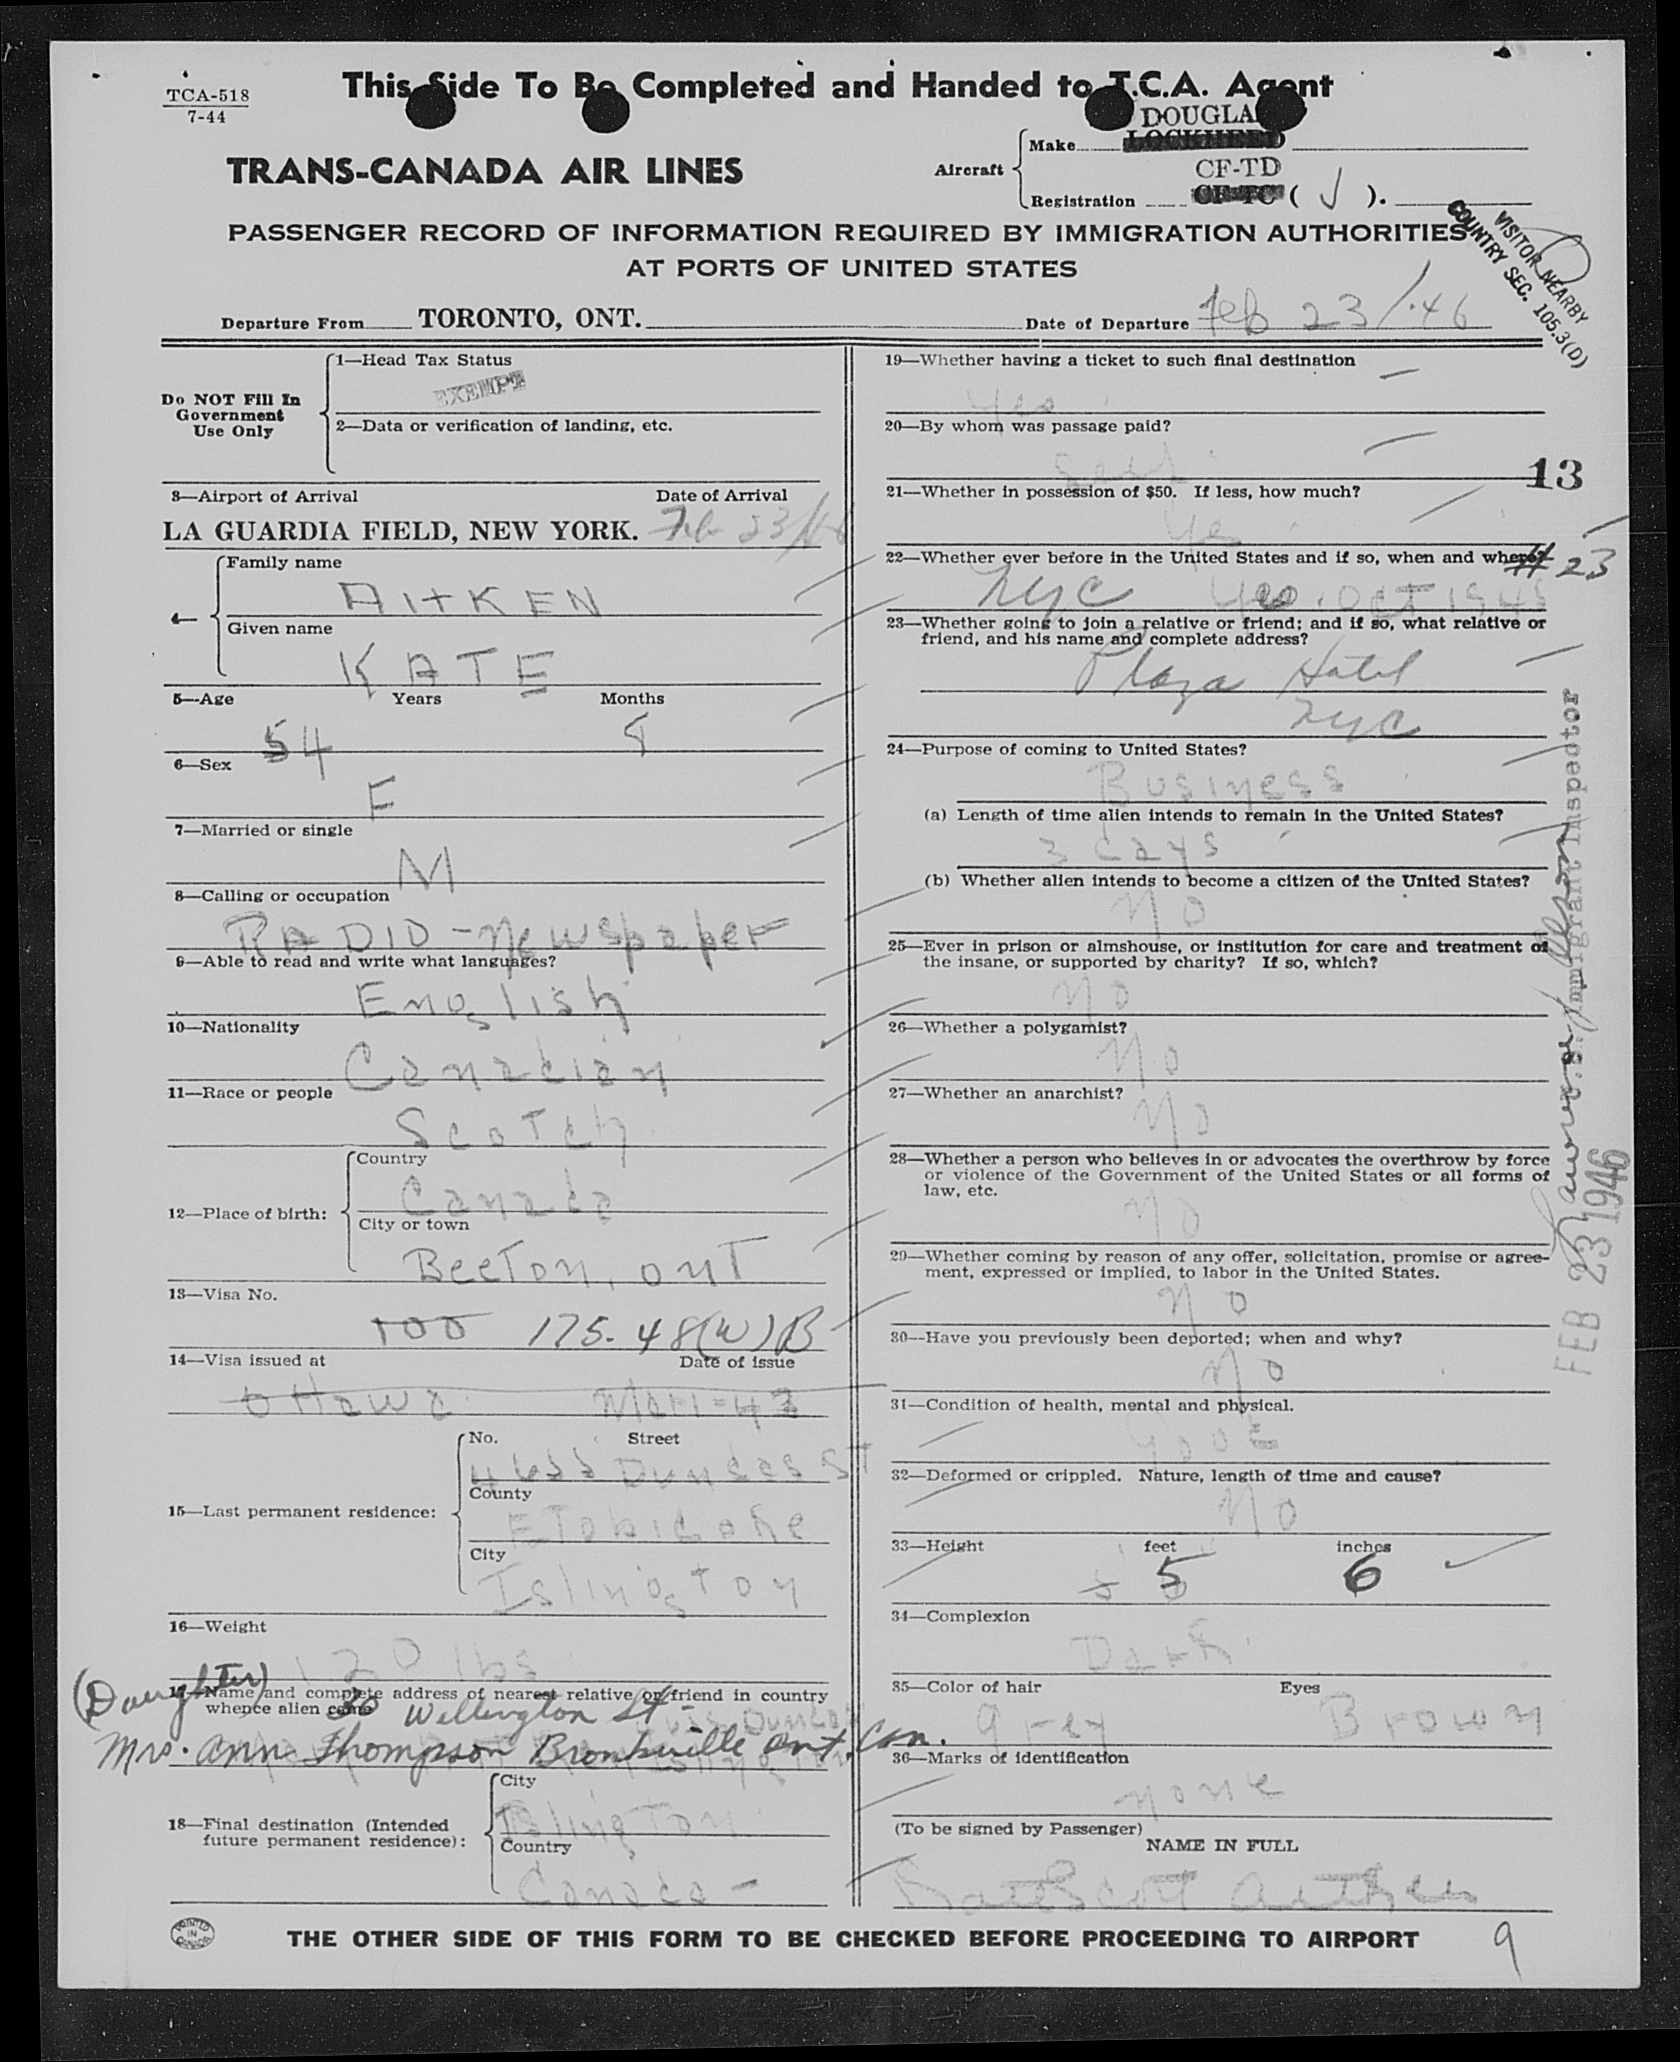 This Side To Be Completed and Handed to T.C.A. Agent
TCA-518
7-44
DOUGLA
Make LOCKHEED
TRANS-CANADA AIR LINES
Aircraft
CF-TD
Registration CF-TC ( J ).
PASSENGER RECORD OF INFORMATION REQUIRED BY IMMIGRATION AUTHORITIES
AT PORTS OF UNITED STATES
VISITOR NEARBY
COUNTRY SEC. 105.3(D)
Departure From TORONTO, ONT. Date of Departure Feb 23/.46
Do NOT Fill In
Government
Use Only
1—Head Tax Status
EXEMPT
2—Data or verification of landing, etc.
3—Airport of Arrival Date of Arrival
LA GUARDIA FIELD, NEW YORK. Feb 23/46
4— Family name
AITKEN
Given name
KATE
5—Age Years Months
54 8
6—Sex
F
7—Married or single
M
8—Calling or occupation
RADIO - Newspaper
9—Able to read and write what languages?
English
10—Nationality
Canadian
11—Race or people
Scotch
12—Place of birth: Country
Canada
City or town
Beeton, ont
13—Visa No.
100 175.48(W)B
14—Visa issued at Date of issue
Ottawa
15—Last permanent residence: No. Street
Dundas ST
County
Etobicoke
City
Islington
16—Weight
120 lbs
(Daughter)
17—Name and complete address of nearest relative or friend in country
whence alien came
30 Wellington St -
Mrs. Ann Thompson Brockville Ont. Can.
18—Final destination (Intended
future permanent residence):
City
Islington
Country
Canada -
19—Whether having a ticket to such final destination
Yes
20—By whom was passage paid?
Self
13
21—Whether in possession of $50. If less, how much?
Yes
22—Whether ever before in the United States and if so, when and where?
# 23
NYC Yes. Oct 1945
23—Whether going to join a relative or friend; and if so, what relative or
friend, and his name and complete address?
Plaza Hotel
NYC
24—Purpose of coming to United States?
Business
(a) Length of time alien intends to remain in the United States?
3 days
(b) Whether alien intends to become a citizen of the United States?
No
25—Ever in prison or almshouse, or institution for care and treatment of
the insane, or supported by charity? If so, which?
No
26—Whether a polygamist?
No
27—Whether an anarchist?
No
28—Whether a person who believes in or advocates the overthrow by force
or violence of the Government of the United States or all forms of
law, etc.
No
29—Whether coming by reason of any offer, solicitation, promise or agree-
ment, expressed or implied, to labor in the United States.
No
30—Have you previously been deported; when and why?
No
31—Condition of health, mental and physical.
Good
32—Deformed or crippled. Nature, length of time and cause?
No
33—Height feet inches
5 6
34—Complexion
Dark
35—Color of hair Eyes
grey Brown
36—Marks of identification
None
(To be signed by Passenger)
NAME IN FULL
Kate Scott Aitken
U.S. Immigrant Inspector
FEB 23 1946
PRINTED IN CANADA
THE OTHER SIDE OF THIS FORM TO BE CHECKED BEFORE PROCEEDING TO AIRPORT
9